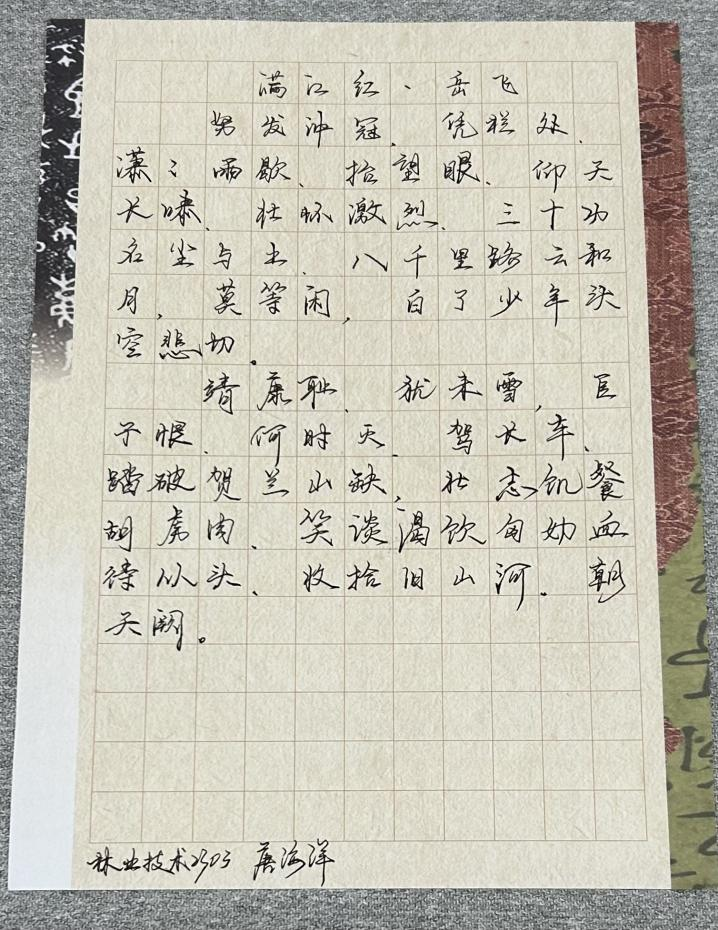 满江红、岳飞
努发冲冠、凭栏处、
潇:雨歇、抬望眼、仰天
长啸、壮怀激烈、三十功
名尘与土、八千里路云和
月,莫等闲,白了少年头
空悲切。
靖康耻、犹未雪,臣
子恨、何时灭、驾长车、
踏破贺兰山缺,壮志饥餐
胡虏肉、笑谈渴饮匈奴血
待从头、收拾旧山河。朝
天阙。
林业技术2303 唐海洋